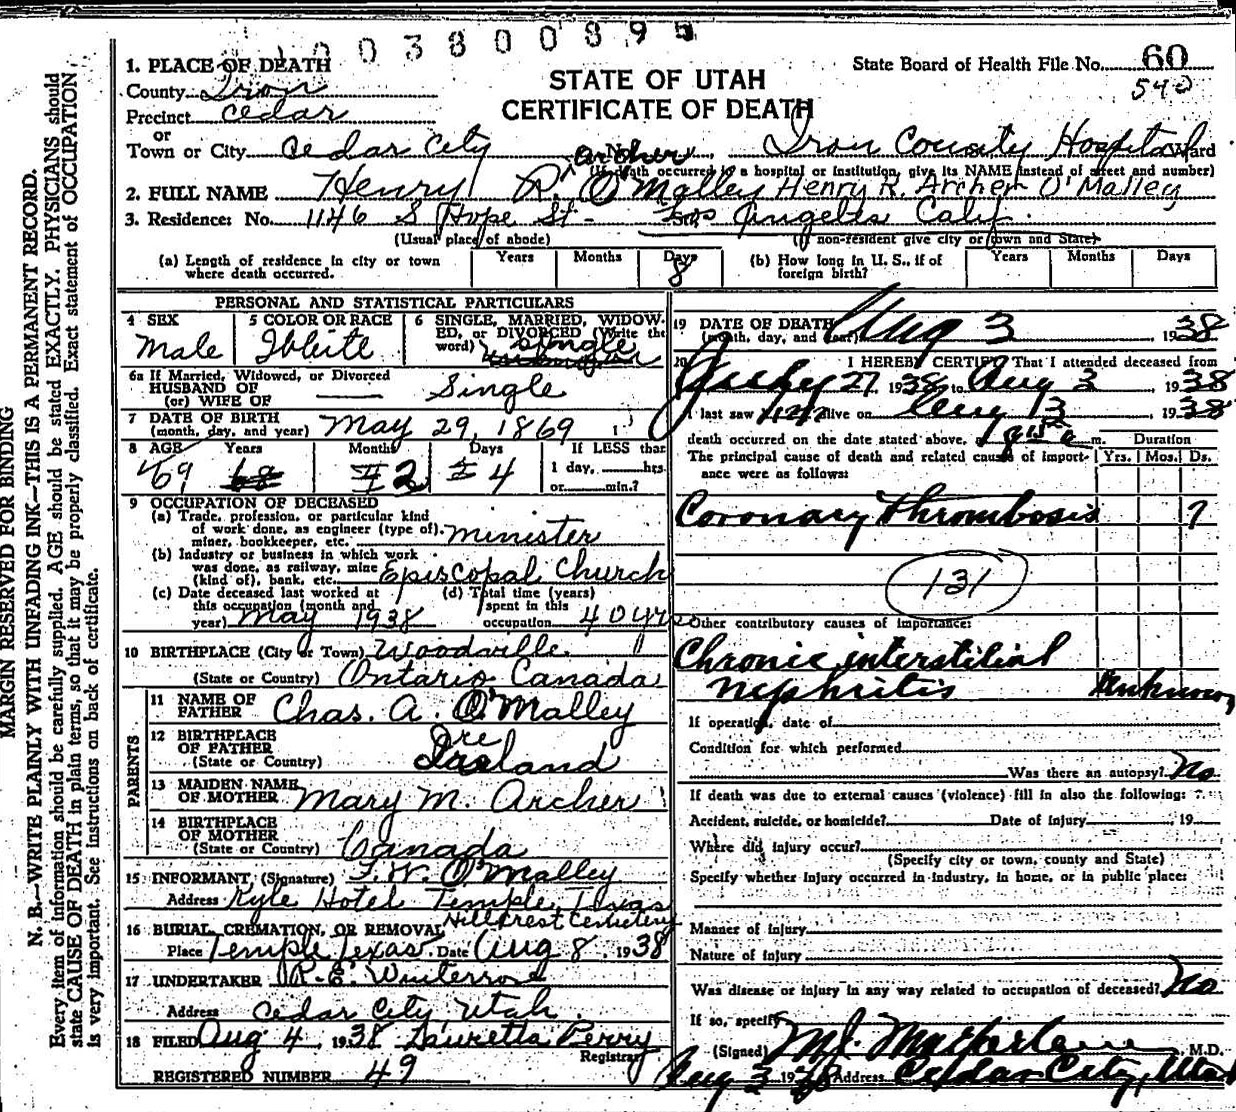 003800895
1. PLACE OF DEATH
State Board of Health File No. 60
540
STATE OF UTAH
CERTIFICATE OF DEATH
County Iron
Precinct Cedar
or
Town or City Cedar City No. Iron County Hospital Ward
(If death occurred in a hospital or institution, give its NAME instead of street and number)
Archer
2. FULL NAME Henry R. O'Malley Henry R. Archer O'Malley
3. Residence: No. 1146 S Hope St - Los Angeles Calif.
(Usual place of abode) (If non-resident give city or town and State)
(a) Length of residence in city or town where death occurred. Years Months Days 8
(b) How long in U. S., if of foreign birth? Years Months Days
PERSONAL AND STATISTICAL PARTICULARS
4 SEX Male
5 COLOR OR RACE White
6 SINGLE, MARRIED, WIDOWED, or DIVORCED (Write the word) Single
6a If Married, Widowed, or Divorced
HUSBAND OF
(or) WIFE OF Single
7 DATE OF BIRTH
(month, day, and year) May 29, 1869
8 AGE Years 69 68 Months 2 Days 4 If LESS than
1 day, hrs.
or min.?
9 OCCUPATION OF DECEASED
(a) Trade, profession, or particular kind
of work done, as engineer (type of),
miner, bookkeeper, etc. Minister
(b) Industry or business in which work
was done, as railway, mine
(kind of), bank, etc. Episcopal Church
(c) Date deceased last worked at
this occupation (month and
year) May 1938
(d) Total time (years)
spent in this
occupation 40 yrs
10 BIRTHPLACE (City or Town) Woodville
(State or Country) Ontario Canada
PARENTS
11 NAME OF
FATHER Chas. A. O'Malley
12 BIRTHPLACE
OF FATHER
(State or Country) Ireland
13 MAIDEN NAME
OF MOTHER Mary M. Archer
14 BIRTHPLACE
OF MOTHER
(State or Country) Canada
15 INFORMANT (Signature) F. W. O'Malley
Address Kyle Hotel Temple, Texas
16 BURIAL, CREMATION, OR REMOVAL Hillcrest Cemetery
Place Temple Texas Date Aug 8 1938
17 UNDERTAKER R. E. Winterrose
Address Cedar City, Utah.
18 FILED Aug 4, 1938 Lauretta Perry
Registrar
REGISTERED NUMBER 49
19 DATE OF DEATH
(month, day, and year) Aug 3 1938
20 I HEREBY CERTIFY That I attended deceased from
July 27 1938 to Aug 3 1938
I last saw him alive on Aug 3 1938
death occurred on the date stated above, a m. Duration
The principal cause of death and related causes of importance were as follows: Yrs. Mos. Ds.
Coronary Thrombosis ?
131
Other contributory causes of importance:
Chronic interstitial
nephritis Unknown
If operation, date of
Condition for which performed
Was there an autopsy? No
If death was due to external causes (violence) fill in also the following:
Accident, suicide, or homicide? Date of injury 19
Where did injury occur?
(Specify city or town, county and State)
Specify whether injury occurred in industry, in home, or in public place:
Manner of injury
Nature of injury
Was disease or injury in any way related to occupation of deceased? No
If so, specify
(Signed) M.J. Macfarlane M.D.
Aug 3 1938 Address Cedar City, Utah
MARGIN RESERVED FOR BINDING
N. B.—WRITE PLAINLY WITH UNFADING INK—THIS IS A PERMANENT RECORD.
Every item of information should be carefully supplied. AGE should be stated EXACTLY. PHYSICIANS should
state CAUSE OF DEATH in plain terms, so that it may be properly classified. Exact statement of OCCUPATION
is very important. See instructions on back of certificate.